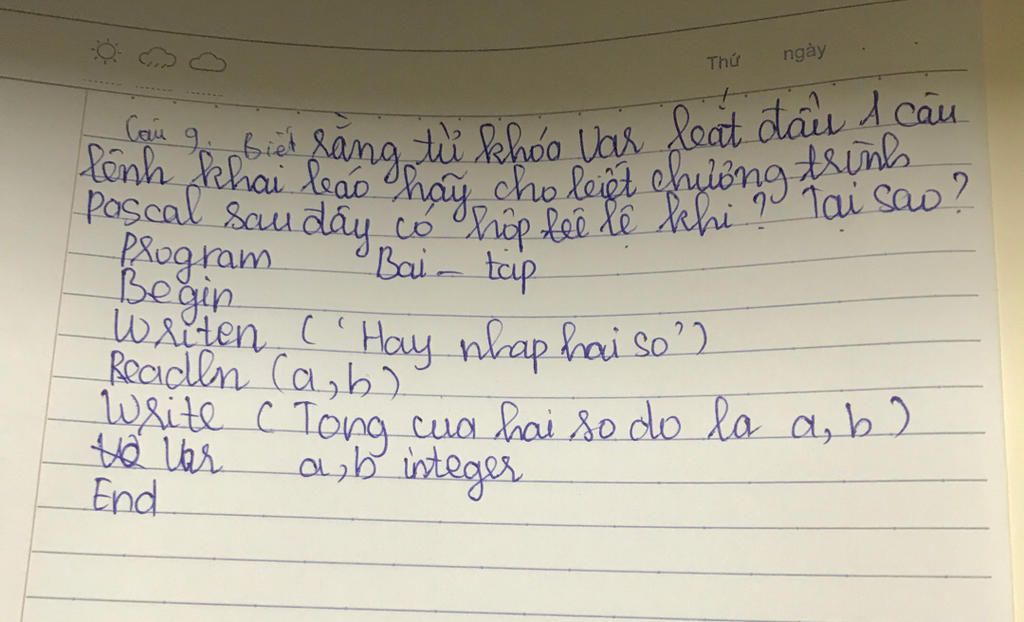 Thứ ngày
Câu 9. Biết rằng từ khóa Var bắt đầu 1 câu
lệnh khai báo hãy cho biết chương trình
pascal sau đây có hợp lệ khi? Tại sao?
Program Bai_tap
Begin
Writen ('Hay nhap hai so')
Readln (a,b)
Write (Tong cua hai so do la a, b)
Var a,b integer
End